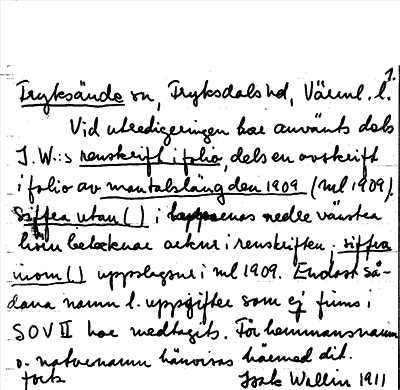 1.
Fryksände sn, Fryksdals hd, Värml. l.
Vid utredigeringen har använts dels
J.W.:s renskrift i folio, dels en avskrift
i folio av mantalslängden 1909 (ml 1909).
Siffra utan ( ) i lapparnas nedre vänstra
hörn betecknar arknr i renskriften; siffra
inom ( ) uppslagsnr i ml 1909. Endast så-
dana namn l. uppgifter som ej finns i
SOV II har medtagits. För hemmansnamn
o. naturnamn hänvisas härmed dit.
forts Isak Wellin 1911